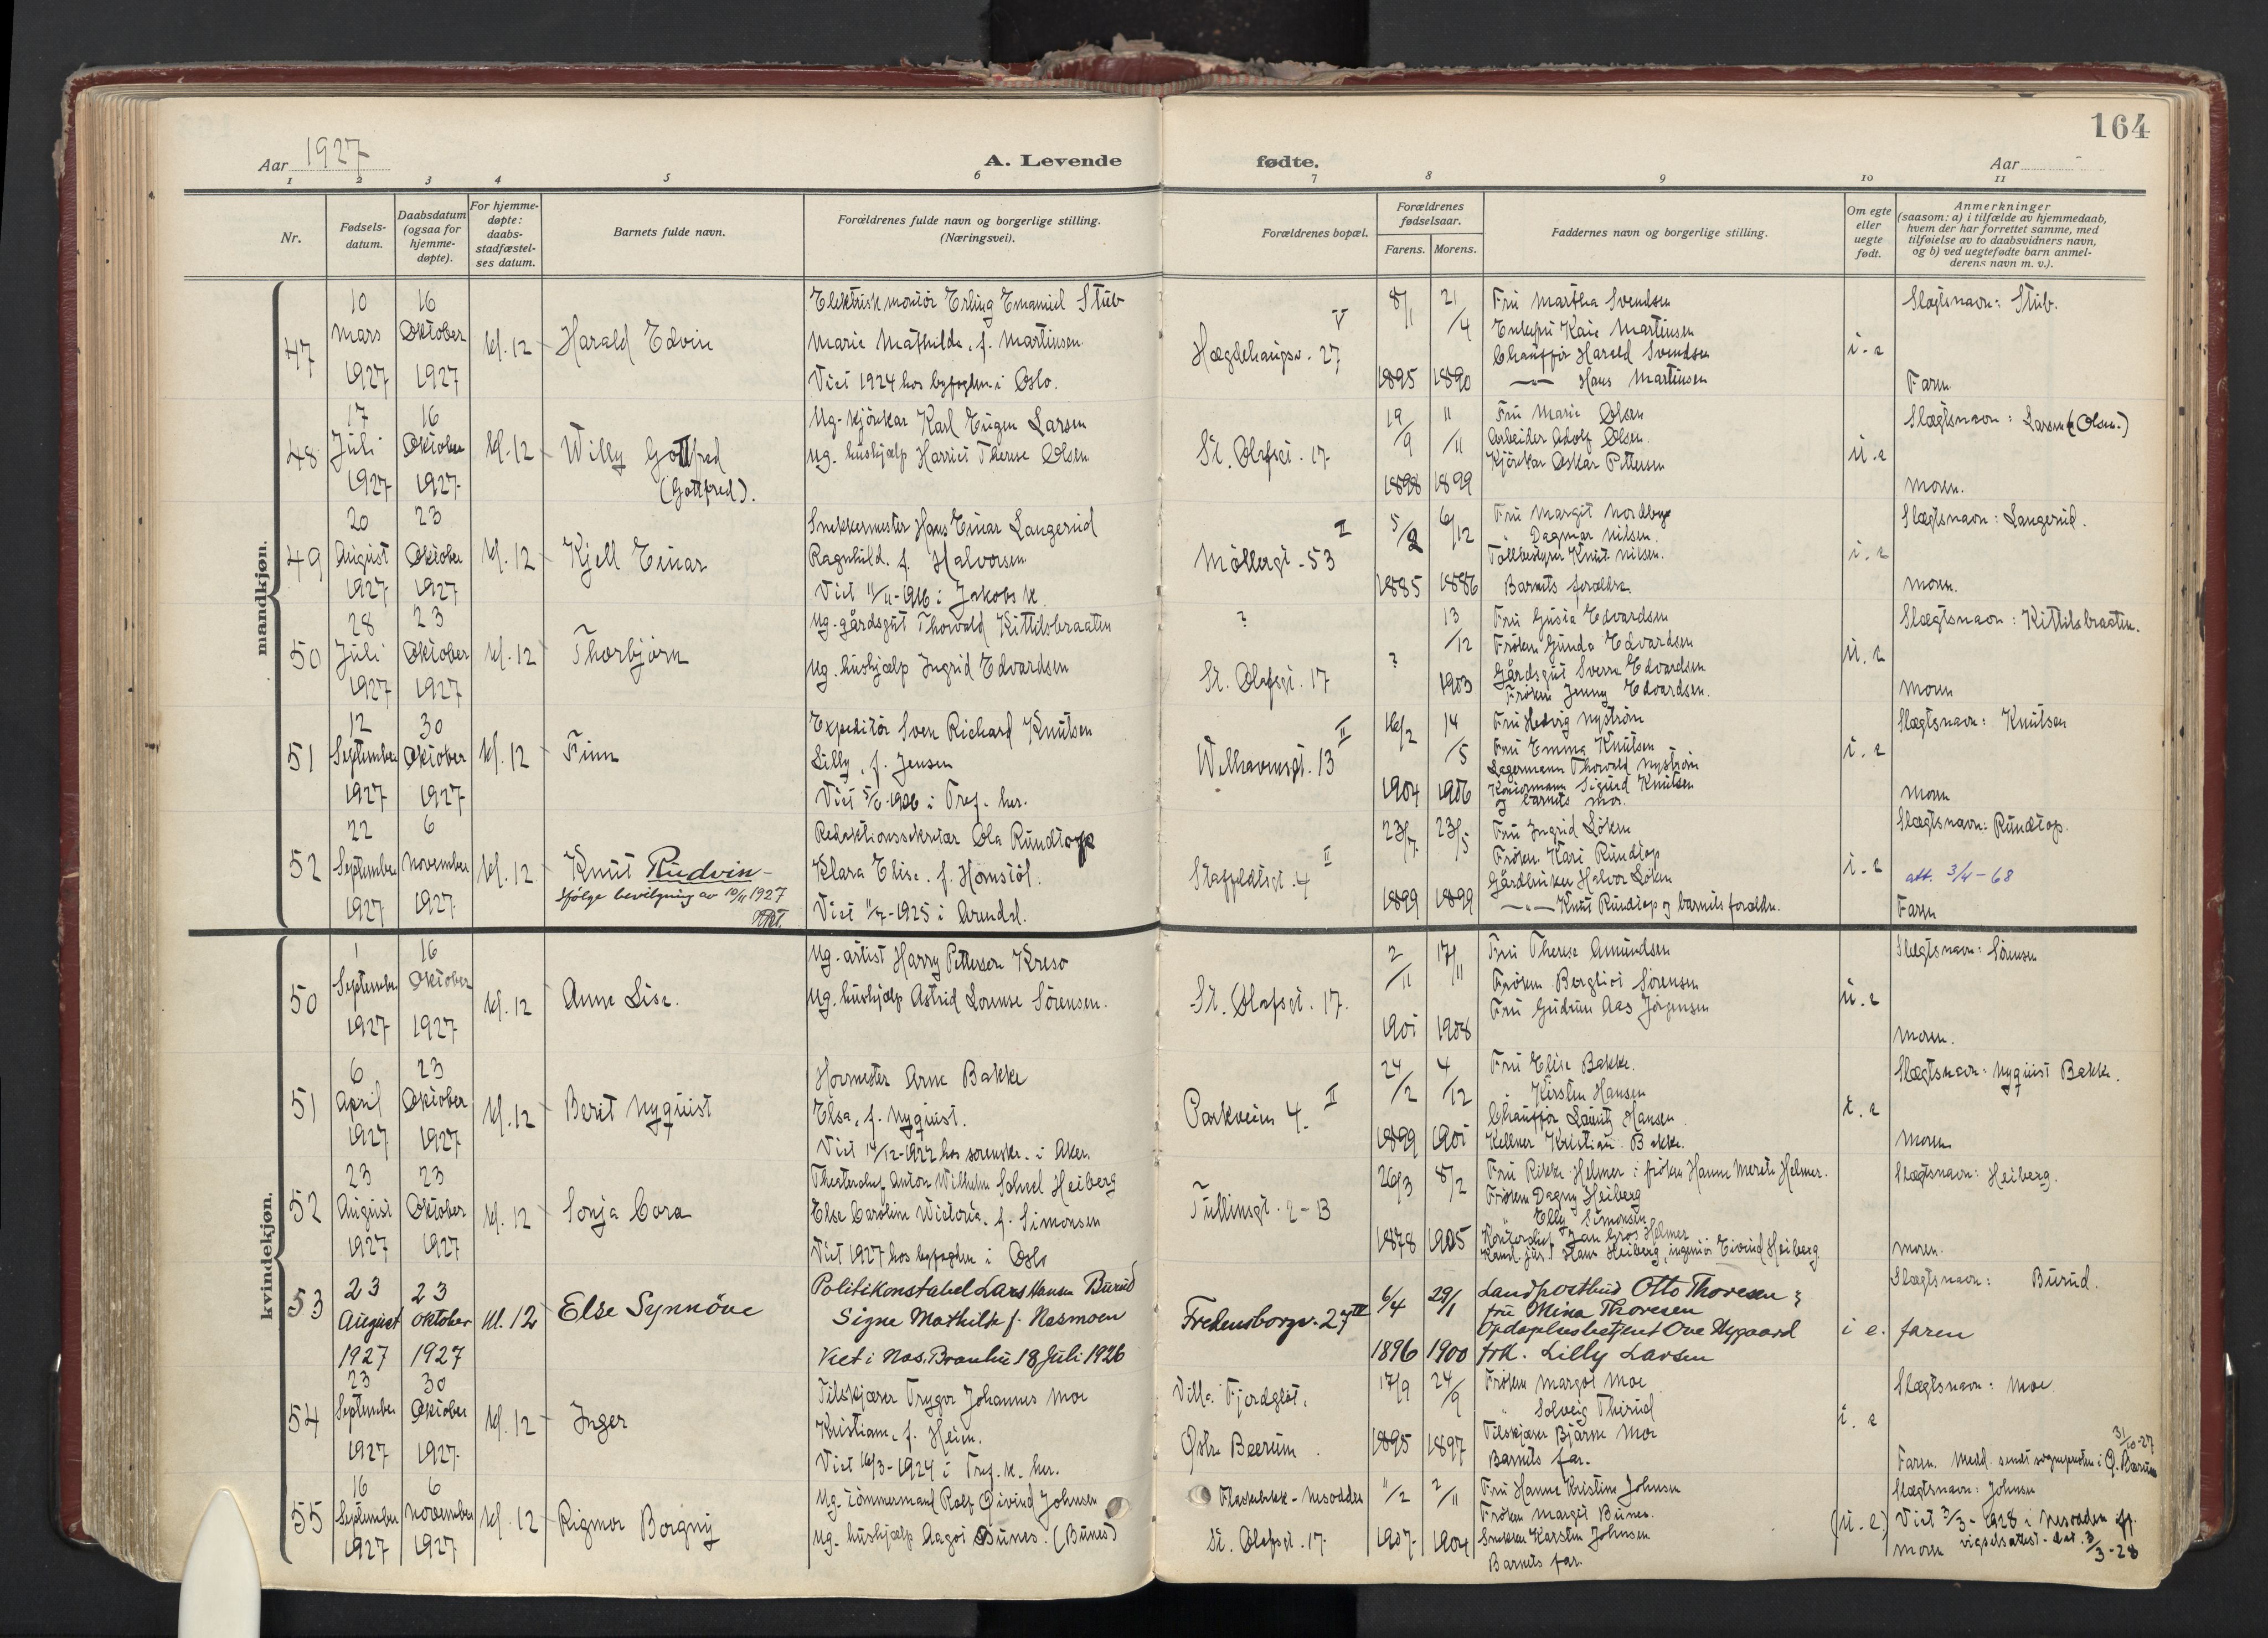 164
Aar 1927
A. Levende
fødte.
Aar
1 2 3 4 5 6 7 8 9 10 11
Nr.
Fødsels-
datum.
Daabsdatum
(ogsaa for
hjemme-
døpte).
For hjemme-
døpte:
daabs-
stadfæstel-
ses datum.
Barnets fulde navn.
Forældrenes fulde navn og borgerlige stilling.
(Næringsvei).
Forældrenes bopæl.
Forældrenes
fødselsaar.
Farens. Morens.
Faddernes navn og borgerlige stilling.
Om egte
eller
uegte
født.
Anmerkninger
(saasom: a) i tilfælde av hjemmedaab,
hvem der har forrettet samme, med
tilføielse av to daabsvidners navn,
og b) ved uegtefødte barn anmel-
derens navn m. v.).
mandkjøn.
47
10 mars 1927
16 Oktober 1927
kl. 12
Harald Edvin
Elektrisk montör Erling Emanuel Stub
Marie Mathilde, f. Martinsen
Viet 1924 hos byfogden i Oslo.
Hægdehaugsv. 27 V
8/1 1895
21/4 1890
Fru Martha Svendsen
Enkefru Kaie Martinsen
Chauffør Harald Svendsen
—"— Hans Martinsen
i. e
Slægtsnavn: Stub.
Faren
48
17 Juli 1927
16 Oktober 1927
kl. 12
Willy Gottfred
(Gottfred).
Ug. kjörekar Karl Eugen Larsen
Ug. hushjælp Harriet Therese Olsen
St. Olafsgt. 17
19/9 1898
11/11 1899
Fru Marie Olsen
Arbeider Adolf Olsen.
Kjörekar Oskar Pettersen
u. e
Slægtsnavn: Larsen (Olsen.)
moren.
49
20 August 1927
23 Oktober 1927
kl. 12
Kjell Einar
Snekkermester Hans Einar Langerud
Ragnhild. f. Halvorsen
Viet 11/11-1916 i Jakobs k.
Möllergt. 53 II
5/2 1885
6/12 1886
Fru Margit Nordbye
" Dagmar Nilsen.
Tollbestyrer Knut Nilsen.
Barnets forældre.
i. e
Slægtsnavn: Langerud.
moren.
50
28 Juli 1927
23 Oktober 1927
kl. 12
Thorbjörn
Ug. gårdsgut Thorvald Kittilsbraaten
Ug. hushjælp Ingrid Edvardsen
?
St. Olafsgt. 17
?
13/12 1903
Fru Gusta Edvardsen
Fröken Gunda Edvardsen
Gårdsgut Sverre Edvardsen
Fröken Jenny Edvardsen.
u. e
Slægtsnavn: Kittilsbraaten.
moren
51
12 September 1927
30 Oktober 1927
kl. 12
Finn
Expeditör Sven Richard Knutsen
Lilly, f. Jensen
Viet 5/6-1926 i Tref. her.
Welhavensgt. 13 II
16/2 1904
14/5 1906
Fru Hedvig Nyström
Fru Emma Knutsen
Lagermann Thorvald Nyström
Kontormann Sigurd Knutsen
og barnets mor.
i. e
Slægtsnavn: Knutsen
moren
52
22 September 1927
6 November 1927
kl. 12
Knut Rudvin
ifölge bevilgning av 10/11 1927
Redaktionssekretær Ola Rundtop
Klara Elise. f. Homstöl.
Viet 11/7-1925 i Arendal.
Staffeldtsgt. 4 II
23/7 1899
23/5 1899
Fru Ingrid Löken
Fröken Kari Rundtop
Gårdbruker Halvor Löken
—"— Knut Rundtop og barnets forældre.
i. e
Slægtsnavn: Rundtop.
att. 3/4-68
Faren
kvindekjøn.
50
1 September 1927
16 Oktober 1927
kl. 12
Anne Lise.
Ug. artist Harry Petterson Kreso
Ug. hushjælp Astrid Lovise Sörensen.
St. Olafsgt. 17.
2/11 1901
17/11 1908
Fru Therese Amundsen
Fröken Bergliot Sörensen
Fru Gudrun Aas Jörgensen
u. e
Slægtsnavn: Sörensen
moren.
51
6 April 1927
23 Oktober 1927
kl. 12
Berit Nyquist
Hovmester Arne Bakke
Elsa, f. Nyquist.
Viet 14/12-1922 hos sorenskr. i Aker.
Parkveien 4. II
24/2 1899
4/12 1901
Fru Elise Bakke.
" Kirsten Hansen
Chauffør Lauritz Hansen
Kellner Kristian Bakke.
i. e
Slægtsnavn: Nyquist Bakke.
moren
52
23 August 1927
23 Oktober 1927
kl. 12
Sonja Cora
Theaterchef Anton Wilhelm Scheel Heiberg
Else Caroline Victoria. f. Simonsen
Viet 1927 hos byfogden i Oslo
Tullinsgt. 2-B
26/3 1878
8/2 1905
Fru Rikke Helmer i fröken Hanne Merete Helmer.
Fröken Dagny Heiberg
" Elly Simonsen
Kontorchef Jan Gros Helmer
Kand. jur. Hans Heiberg, ingeniör Eivind Heiberg
Slægtsnavn: Heiberg.
moren.
53
23 August 1927
23 oktober 1927
kl. 12
Else Synnöve
Politikonstabel Lars Hansen Burud
Signe Mathilde f. Nasmoen
Viet i Nas. 18 Juli 1926
Fredensborgv. 27 IV
6/4 1896
29/1 1900
Landpostbud Otto Thoresen
fru Mina Thoresen
Opdagelsesbetjent Ove Nygaard
frk. Lilly Larsen
i e.
Slægtsnavn: Burud.
faren
54
23 September 1927
30 Oktober 1927
kl. 12
Inger
Tilskjærer Trygve Johannes Moe
Kristiane, f. Heien.
Viet 16/3-1924 i Tref. k. her.
Villa Fjordglöt,
Östre Bærum.
17/9 1895
24/9 1897
Fröken Margot Moe
" Solveig Thirud
Tilskjærer Bjarne Moe
Barnets far.
i. e
Slægtsnavn: Moe.
Faren. Medd. sendt sognepresten i Ö. Bærum 31/10-27
55
16 September 1927
6 November 1927
kl. 12
Rigmor Borgny
Ug. tömmermand Rolf Öivind Johnsen
Ug. hushjælp Aagot Bunes. (Bunes)
Flaskebekk - Nesodden
St. Olafsgt. 17.
11/2 1907
2/11 1904
Fru Hanne Kristine Johnsen
Fröken Margit Bunes.
Snekker Karsten Johnsen
Barnets far.
(u. e)
Slægtsnavn: Johnsen
Viet 3/3-1928 i Nesodden
vigselsattest. dat. 3/3-28
moren